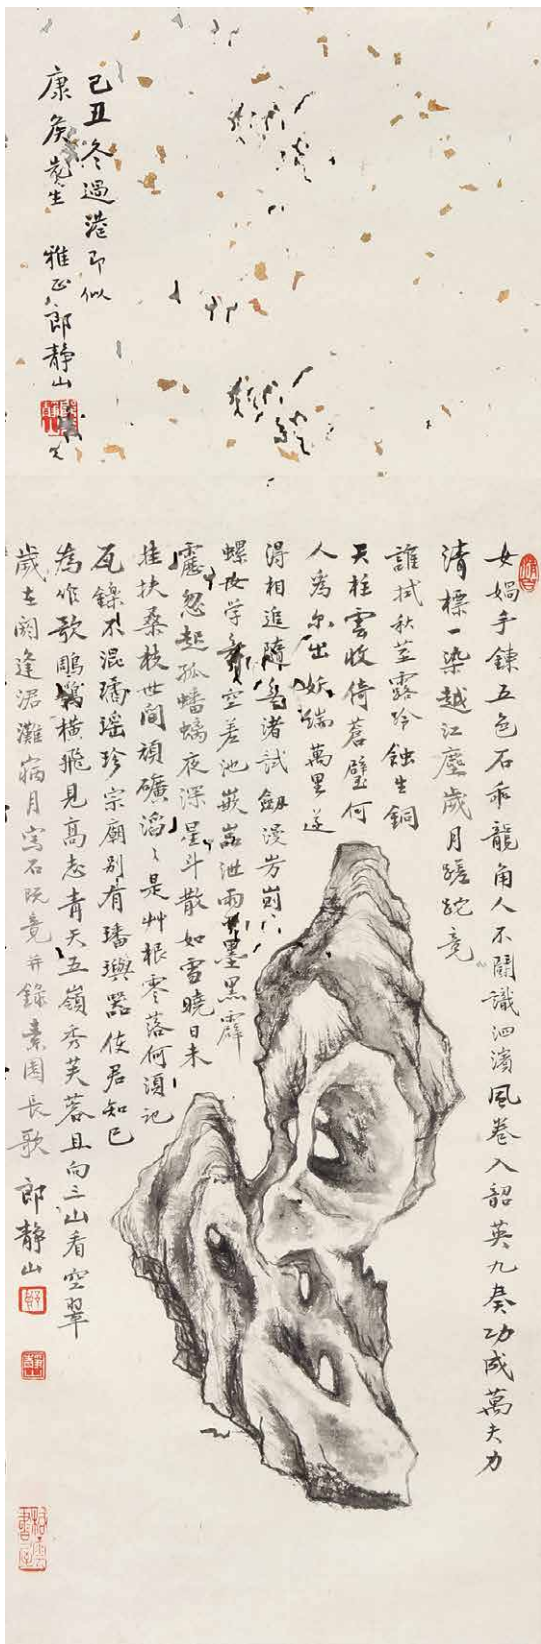 己丑冬過港即似
康侯先生 雅正 郎靜山
女媧手鍊五色石乖龍角人不關識泗濱風卷入韶英九奏功成萬夫力
清標一染越江塵歲月蹉跎竟
誰拭秋莖露冷蝕生銅
天柱雲收倚蒼璧何
人為爾出妖端萬里遂
得相追隨 渚試劍漫
螺女學 空差池嵌嵓泄雨 墨黑霹
靂忽起孤蟠螭夜深星斗散如雪曉日未
挂扶桑枝世間頑礦滔滔是艸根零落何須記
瓦鎳不混璚瑤珍宗廟別有璠璵器使君知已
為作歌鵰鶚橫飛見高志青天五嶺秀芙蓉且向三山看空翠
歲在閼逢涒灘病月寫石既竟并錄素園長歌 郎靜山